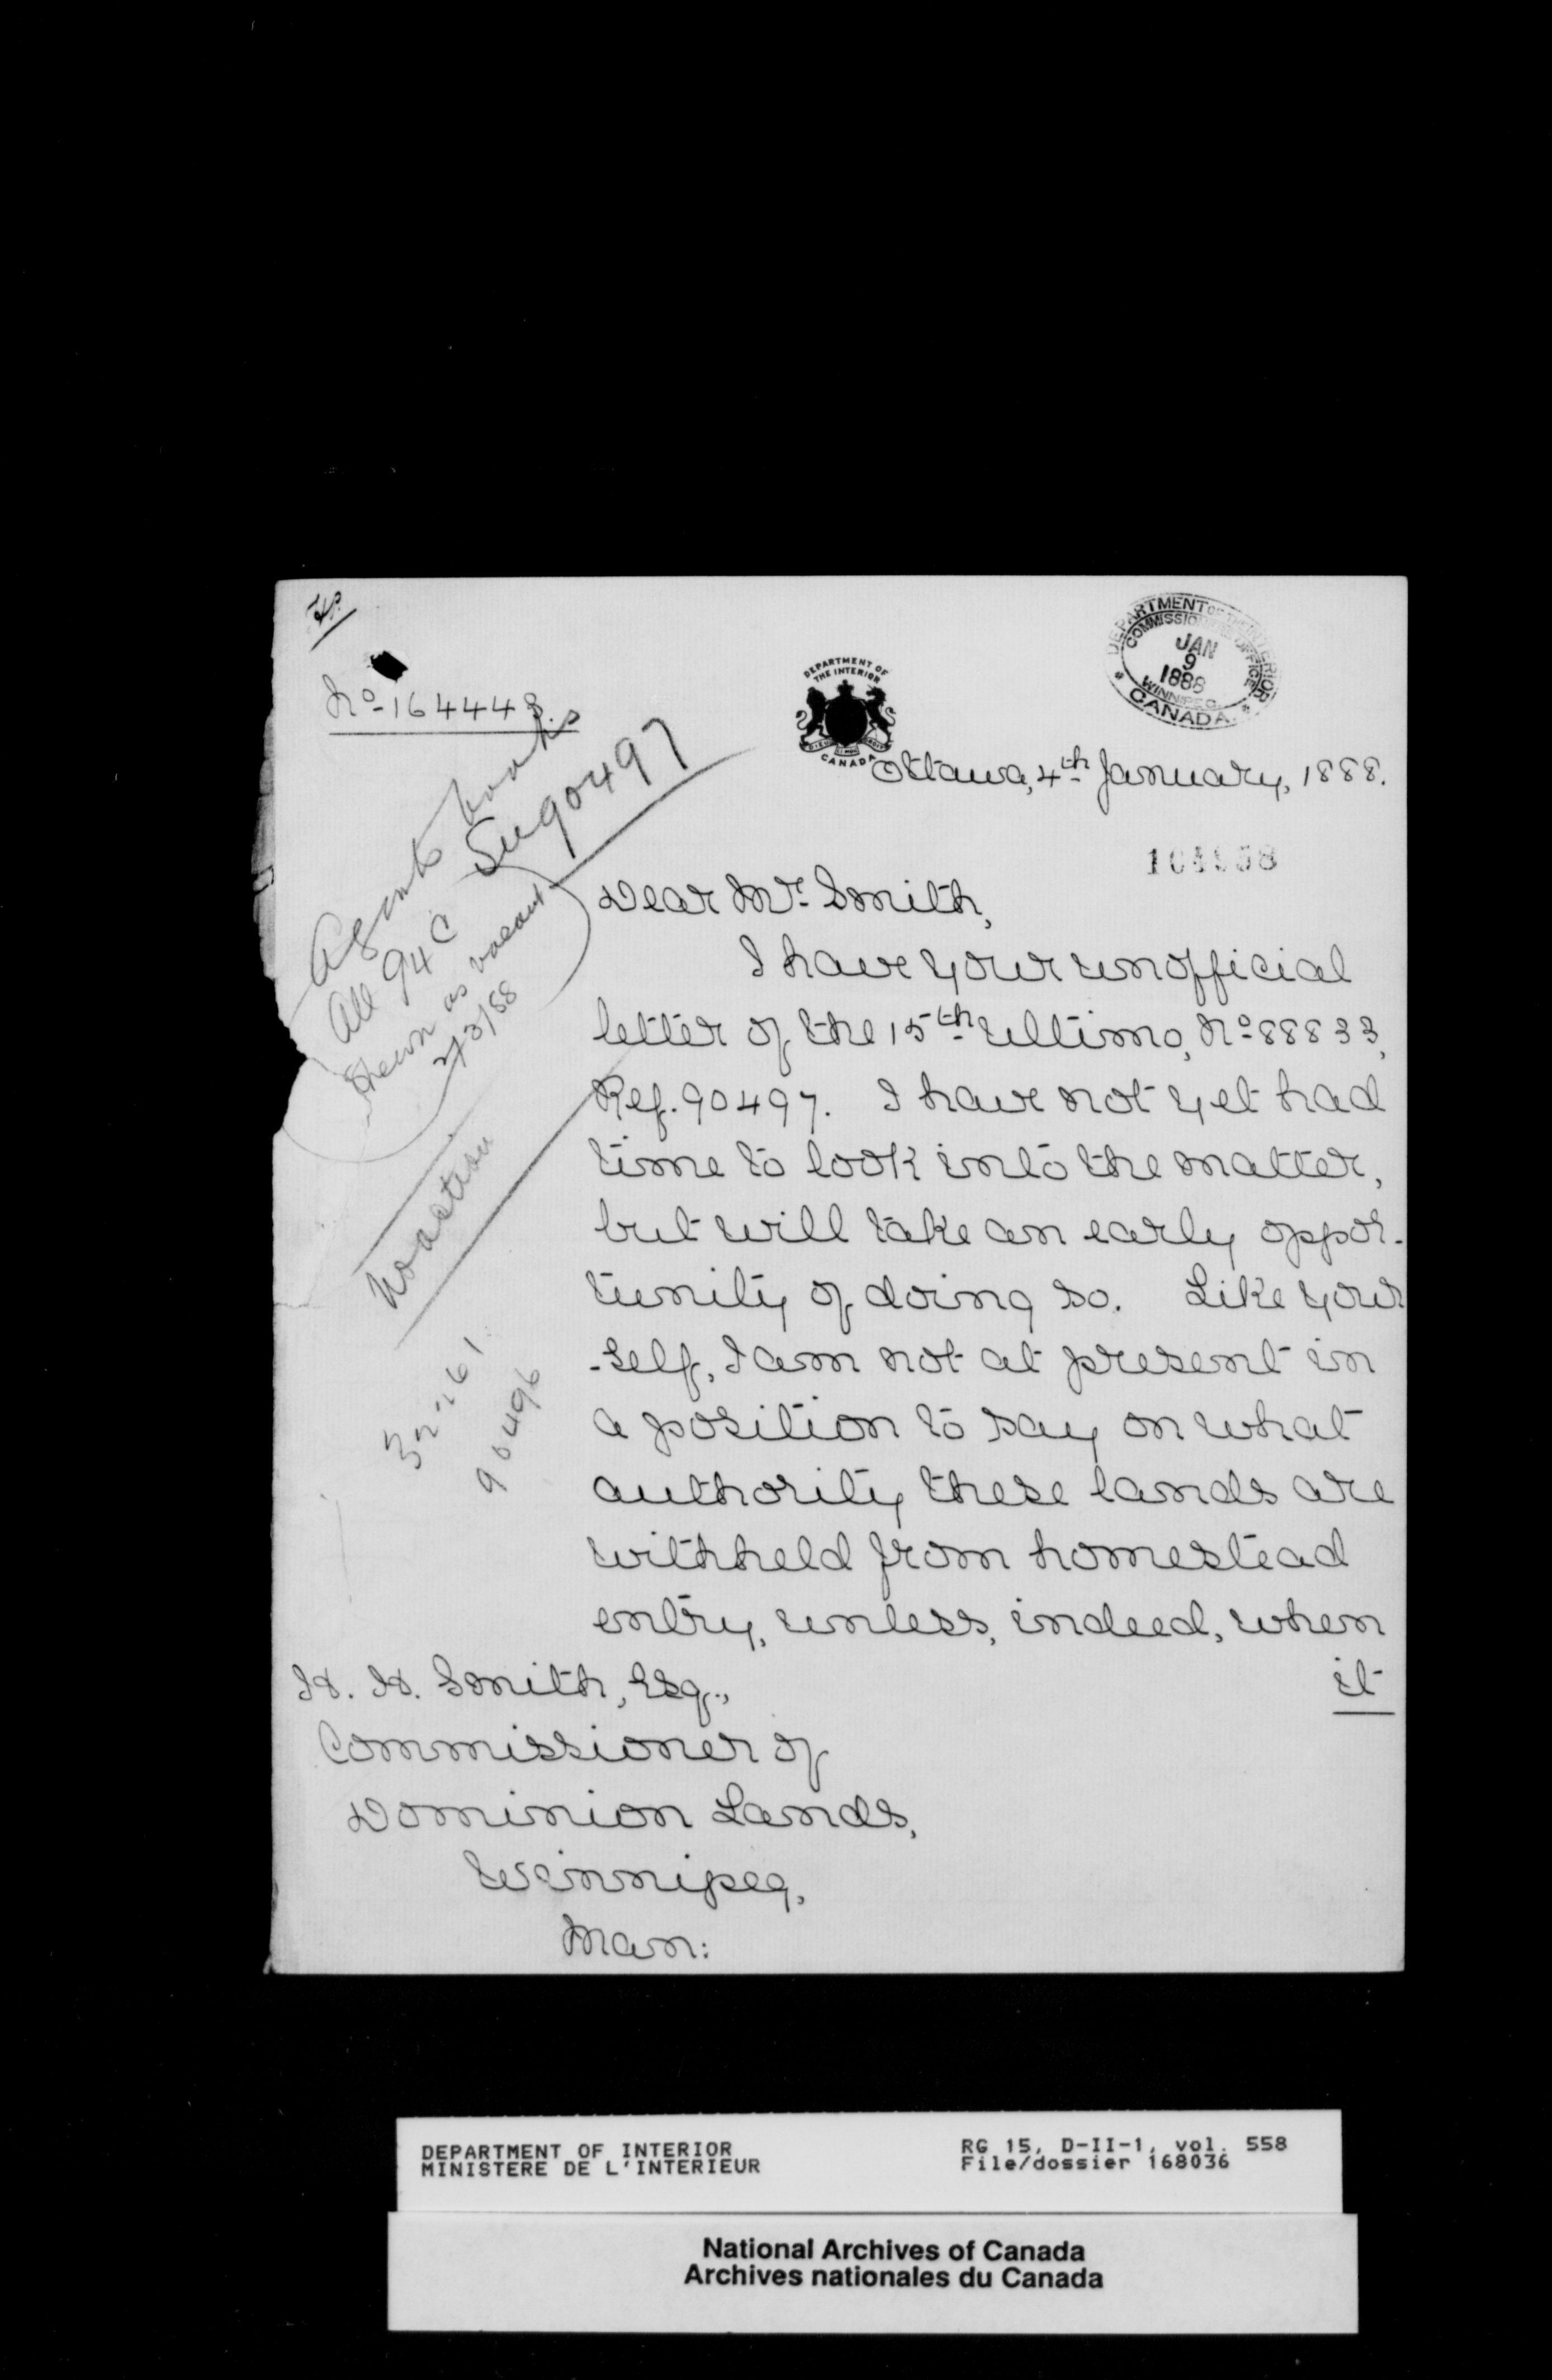 No 164448.
DEPARTMENT OF
THE INTERIOR
CANADA
DEPARTMENT OF THE INTERIOR
COMMISSIONER'S OFFICE
JAN
9
1888
WINNIPEG
CANADA
Ottawa, 4th January, 1888.
Agents books
All 94C
shewn as vacant
2/3/88
90497
No action
90496
Dear Mr. Smith,
I have your unofficial
letter of the 15th ultimo, No 88833,
Ref. 90497. I have not yet had
time to look into the matter,
but will take an early oppor-
tunity of doing so. Like your
-self, I am not at present in
a position to say on what
authority these lands are
withheld from homestead
entry, unless, indeed, when
it
H. H. Smith, Esq.,
Commissioner of
Dominion Lands,
Winnipeg,
Man:
DEPARTMENT OF INTERIOR
MINISTERE DE L'INTERIEUR
RG 15, D-II-1, vol. 558
File/dossier 168036
National Archives of Canada
Archives nationales du Canada